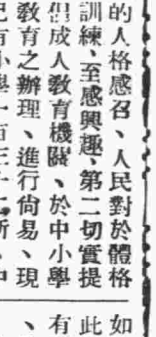 的人格感召、人民對於體格
訓練、至感興趣、第二切實提
倡成人教育機關、於中小學
教育之辦理、進行尙易、現
如
此
有
、